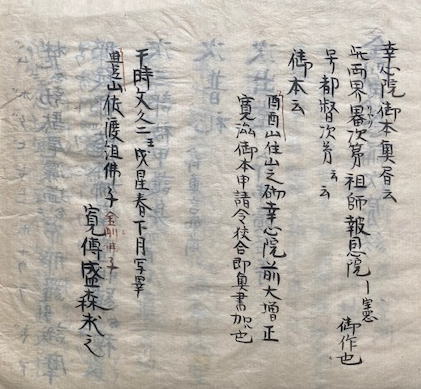 幸心院御本奥云
両界畧次第祖師報恩院ー憲
御作也
号都督次第云云
御本云
酉酉山住山之砌幸心院前大増正
寛済御本申請令校合即奥書加也
于時文久二壬戌星春下月写畢
豊山佛子 金剛佛子
寛傳盛森求之